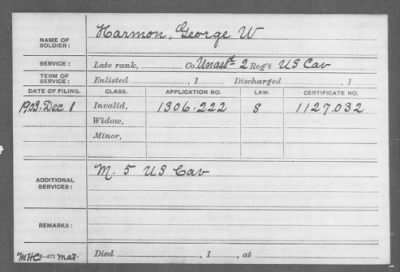 NAME OF SOLDIER: Harmon, George W
SERVICE: Late rank, Co. Unast- 2 Reg't US Cav
TERM OF SERVICE: Enlisted , 1 Discharged , 1
DATE OF FILING. CLASS. APPLICATION NO. LAW. CERTIFICATE NO.
1903. Dec 1 Invalid, 1306.222 S 1127.032
Widow,
Minor,
ADDITIONAL SERVICES: M. 5 US Cav
REMARKS:
Died , 1 , at